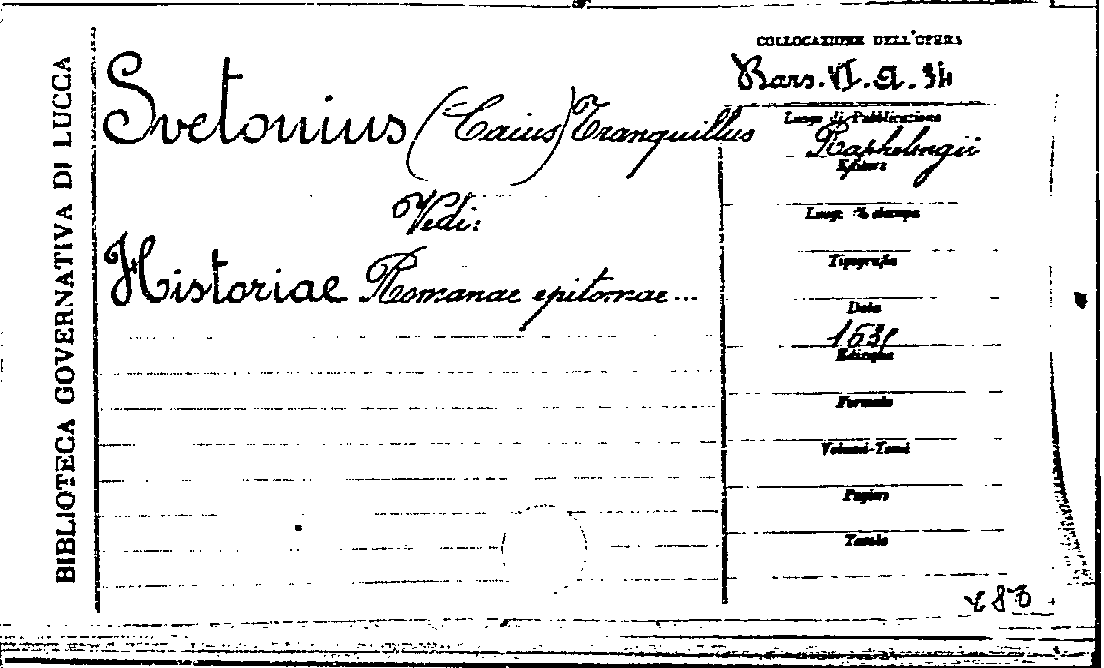 BIBLIOTECA GOVERNATIVA DI LUCCA
Svetonius (Caius) Tranquillus
Vedi:
Historiae Romanae epitomae...
COLLOCAZIONE DELL'OPERA
Bars. VI. A. 34
Luogo di Pubblicazione
Raphelingii
Editore
Luogo di stampa
Tipografia
Data
Edizione
Formato
Volumi-Tomi
Pagine
Tavole